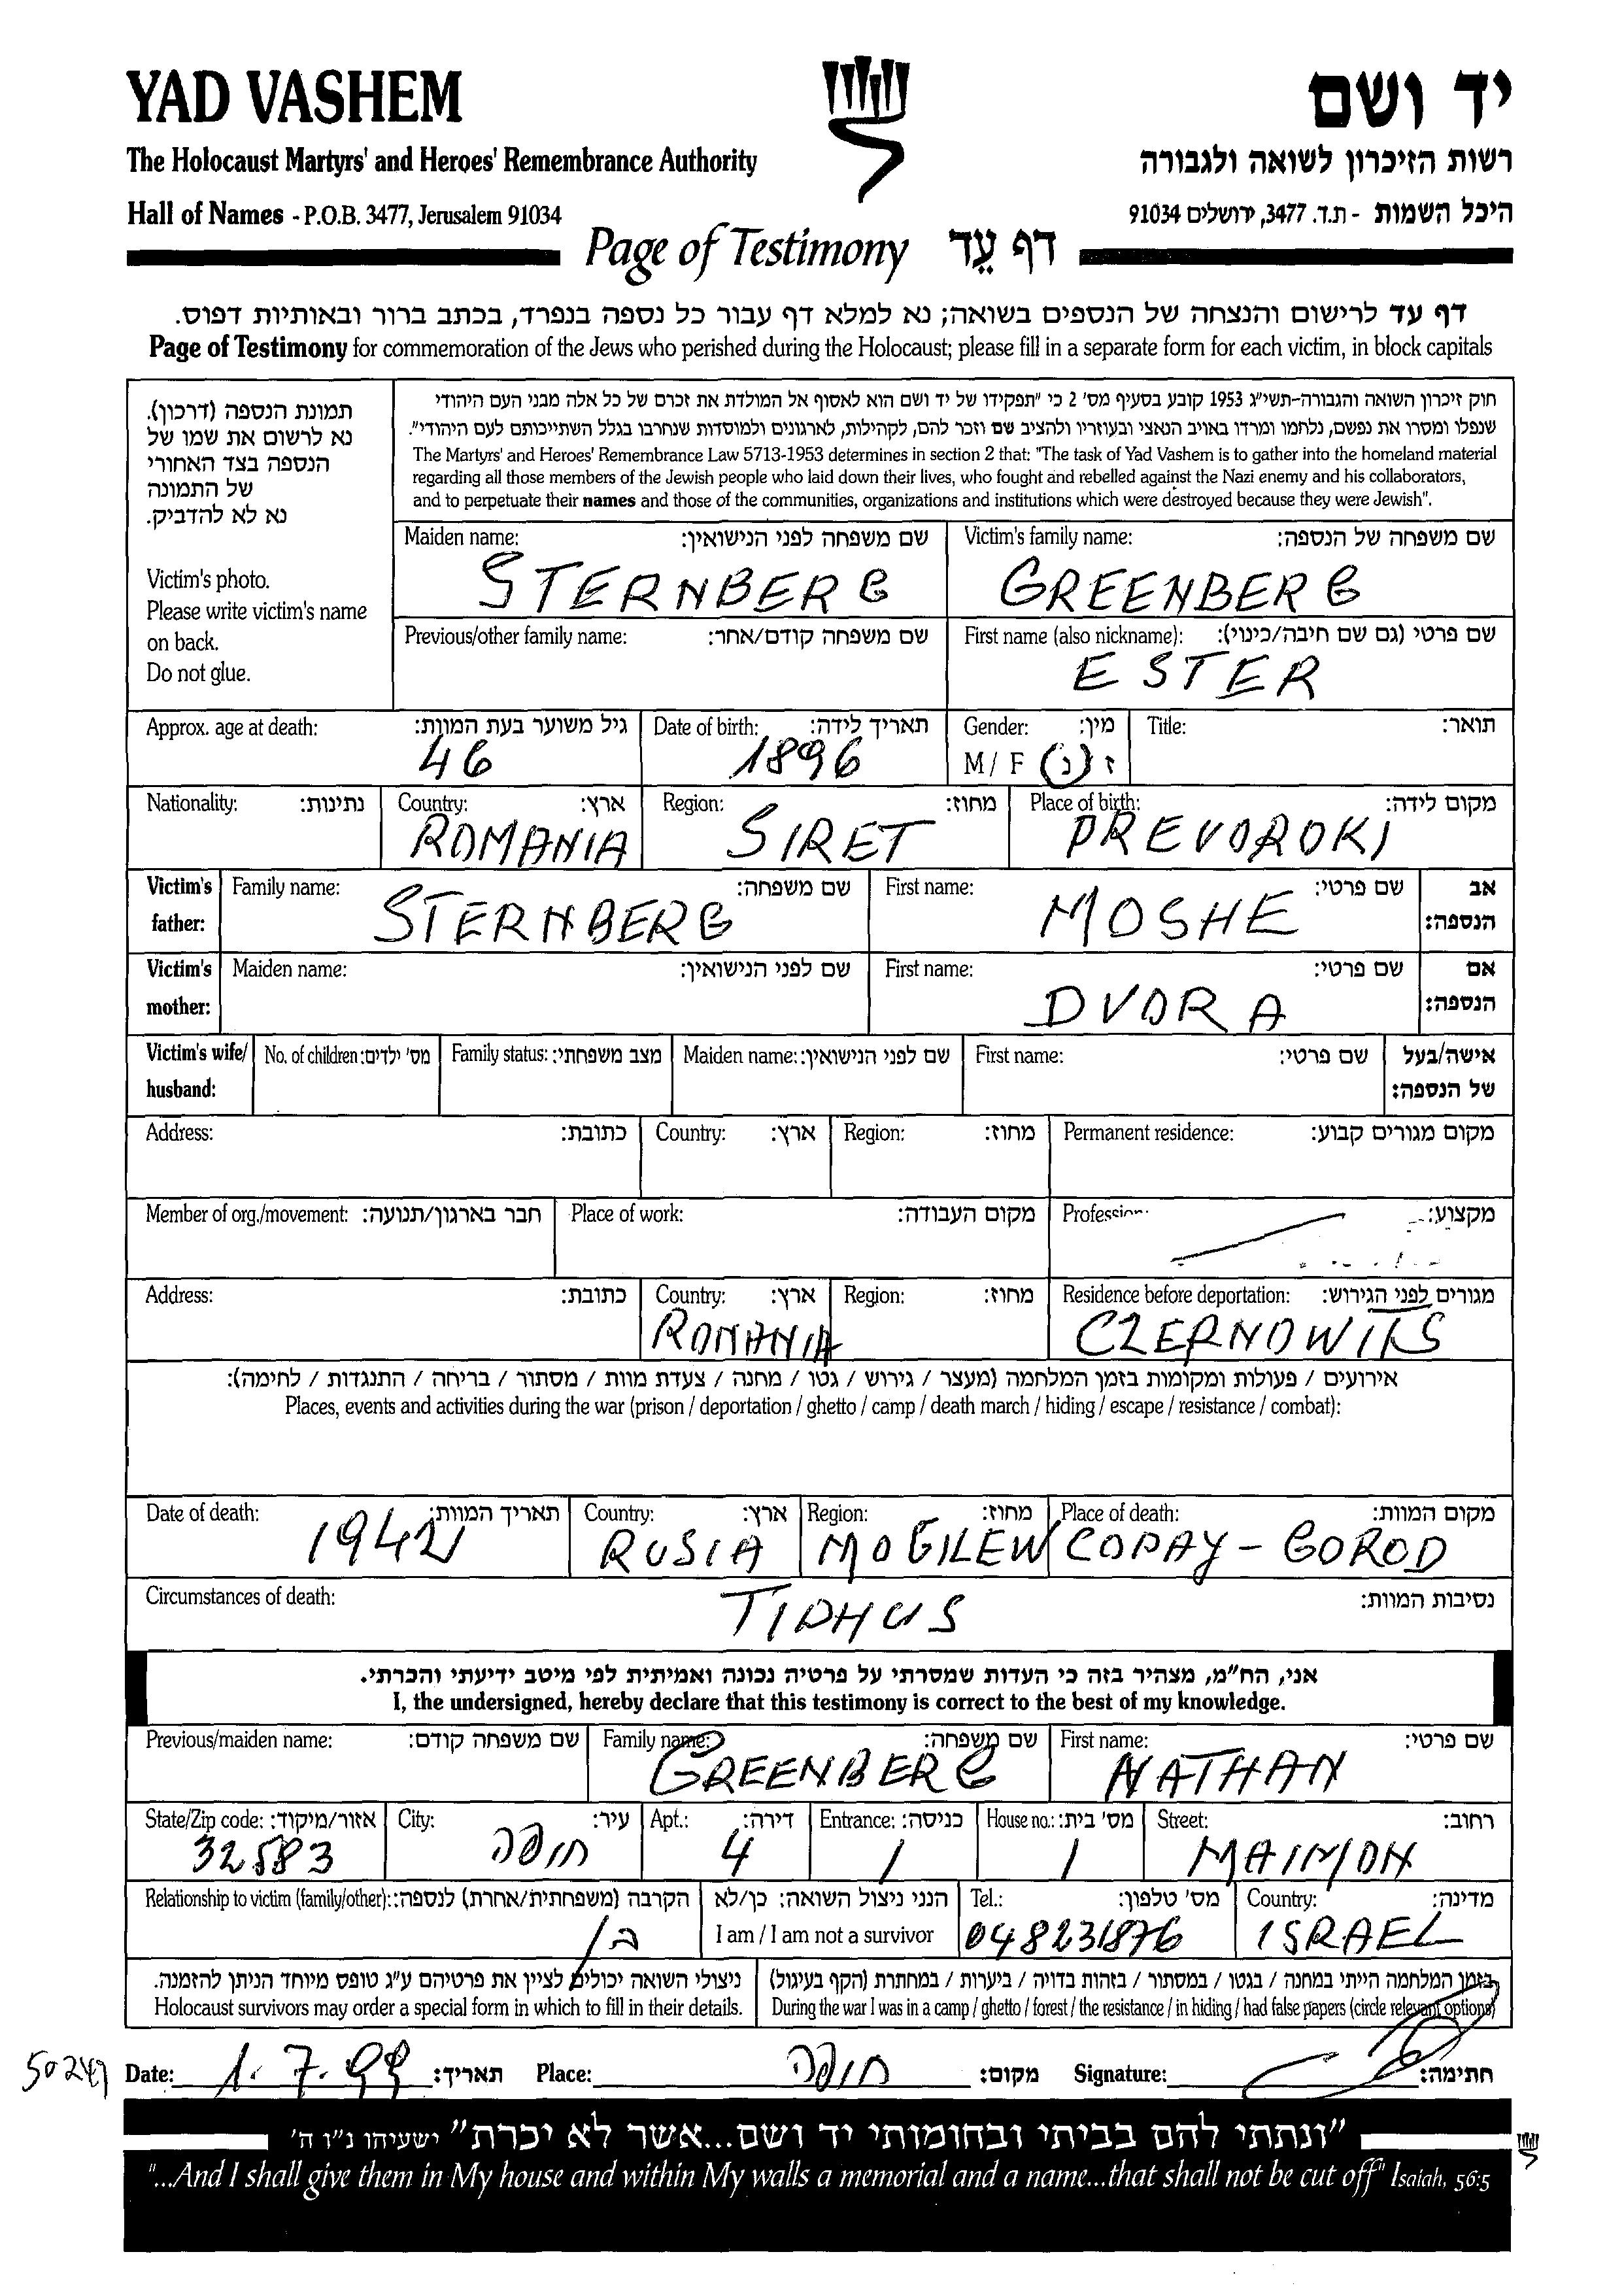 YAD VASHEM
יד ושם
The Holocaust Martyrs' and Heroes' Remembrance Authority
רשות הזיכרון לשואה ולגבורה
Hall of Names - P.O.B. 3477, Jerusalem 91034
היכל השמות - ת.ד. 3477, ירושלים 91034
Page of Testimony דף עֵד
דף עד לרישום והנצחה של הנספים בשואה; נא למלא דף עבור כל נספה בנפרד, בכתב ברור ובאותיות דפוס.
Page of Testimony for commemoration of the Jews who perished during the Holocaust; please fill in a separate form for each victim, in block capitals
תמונת הנספה (דרכון).
נא לרשום את שמו של
הנספה בצד האחורי
של התמונה
נא לא להדביק.
Victim's photo.
Please write victim's name
on back.
Do not glue.
חוק זיכרון השואה והגבורה-תשי"ג 1953 קובע בסעיף מס' 2 כי "תפקידו של יד ושם הוא לאסוף אל המולדת את זכרם של כל אלה מבני העם היהודי
שנפלו ומסרו את נפשם, נלחמו ומרדו באויב הנאצי ובעוזריו ולהציב שם וזכר להם, לקהילות, לארגונים ולמוסדות שנחרבו בגלל השתייכותם לעם היהודי".
The Martyrs' and Heroes' Remembrance Law 5713-1953 determines in section 2 that: "The task of Yad Vashem is to gather into the homeland material
regarding all those members of the Jewish people who laid down their lives, who fought and rebelled against the Nazi enemy and his collaborators,
and to perpetuate their names and those of the communities, organizations and institutions which were destroyed because they were Jewish".
Maiden name: שם משפחה לפני הנישואין:
STERNBERG
Victim's family name: שם משפחה של הנספה:
GREENBERG
Previous/other family name: שם משפחה קודם/אחר:
First name (also nickname): שם פרטי (גם שם חיבה/כינוי):
ESTER
Approx. age at death: גיל משוער בעת המוות:
46
Date of birth: תאריך לידה:
1896
Gender: מין:
M / F נ / ז
Title: תואר:
Nationality: נתינות:
Country: ארץ:
ROMANIA
Region: מחוז:
SIRET
Place of birth: מקום לידה:
PREVOROKI
Victim's father:
Family name: שם משפחה:
STERNBERG
First name: שם פרטי:
MOSHE
אב הנספה:
Victim's mother:
Maiden name: שם לפני הנישואין:
First name: שם פרטי:
DVORA
אם הנספה:
Victim's wife/ husband:
No. of children: מס' ילדים:
Family status: מצב משפחתי:
Maiden name: שם לפני הנישואין:
First name: שם פרטי:
אישה/בעל של הנספה:
Address: כתובת:
Country: ארץ:
Region: מחוז:
Permanent residence: מקום מגורים קבוע:
Member of org./movement: חבר בארגון/תנועה:
Place of work: מקום העבודה:
Profession: מקצוע:
Address: כתובת:
Country: ארץ:
ROMANIA
Region: מחוז:
Residence before deportation: מגורים לפני הגירוש:
CZERNOWITS
אירועים / פעולות ומקומות בזמן המלחמה (מעצר / גירוש / גטו / מחנה / צעדת מוות / מסתור / בריחה / התנגדות / לחימה):
Places, events and activities during the war (prison / deportation / ghetto / camp / death march / hiding / escape / resistance / combat):
Date of death: תאריך המוות:
1942
Country: ארץ:
RUSIA
Region: מחוז:
MOGILEW
Place of death: מקום המוות:
COPAY - GOROD
Circumstances of death: נסיבות המוות:
TIPHUS
אני, הח"מ, מצהיר בזה כי העדות שמסרתי על פרטיה נכונה ואמיתית לפי מיטב ידיעתי והכרתי.
I, the undersigned, hereby declare that this testimony is correct to the best of my knowledge.
Previous/maiden name: שם משפחה קודם:
Family name: שם משפחה:
GREENBERG
First name: שם פרטי:
NATHAN
State/Zip code: אזור/מיקוד:
32583
City: עיר:
חיפה
Apt.: דירה:
4
Entrance: כניסה:
1
House no.: מס' בית:
1
Street: רחוב:
MAIMON
Relationship to victim (family/other): הקרבה (משפחתית/אחרת) לנספה:
בן
הנני ניצול השואה: כן/לא
I am / I am not a survivor
Tel.: מס' טלפון:
048231876
Country: מדינה:
ISRAEL
ניצולי השואה יכולים לציין את פרטיהם ע"ג טופס מיוחד הניתן להזמנה.
Holocaust survivors may order a special form in which to fill in their details.
בזמן המלחמה הייתי במחנה / בגטו / במסתור / בזהות בדויה / ביערות / במחתרת (הקף בעיגול)
During the war I was in a camp / ghetto / forest / the resistance / in hiding / had false papers (circle relevant options)
50249
Date: 1.7.99 תאריך: Place: חיפה מקום: Signature: חתימה:
"ונתתי להם בביתי ובחומותי יד ושם...אשר לא יכרת" ישעיהו נ"ו ה'
"...And I shall give them in My house and within My walls a memorial and a name...that shall not be cut off" Isaiah, 56:5